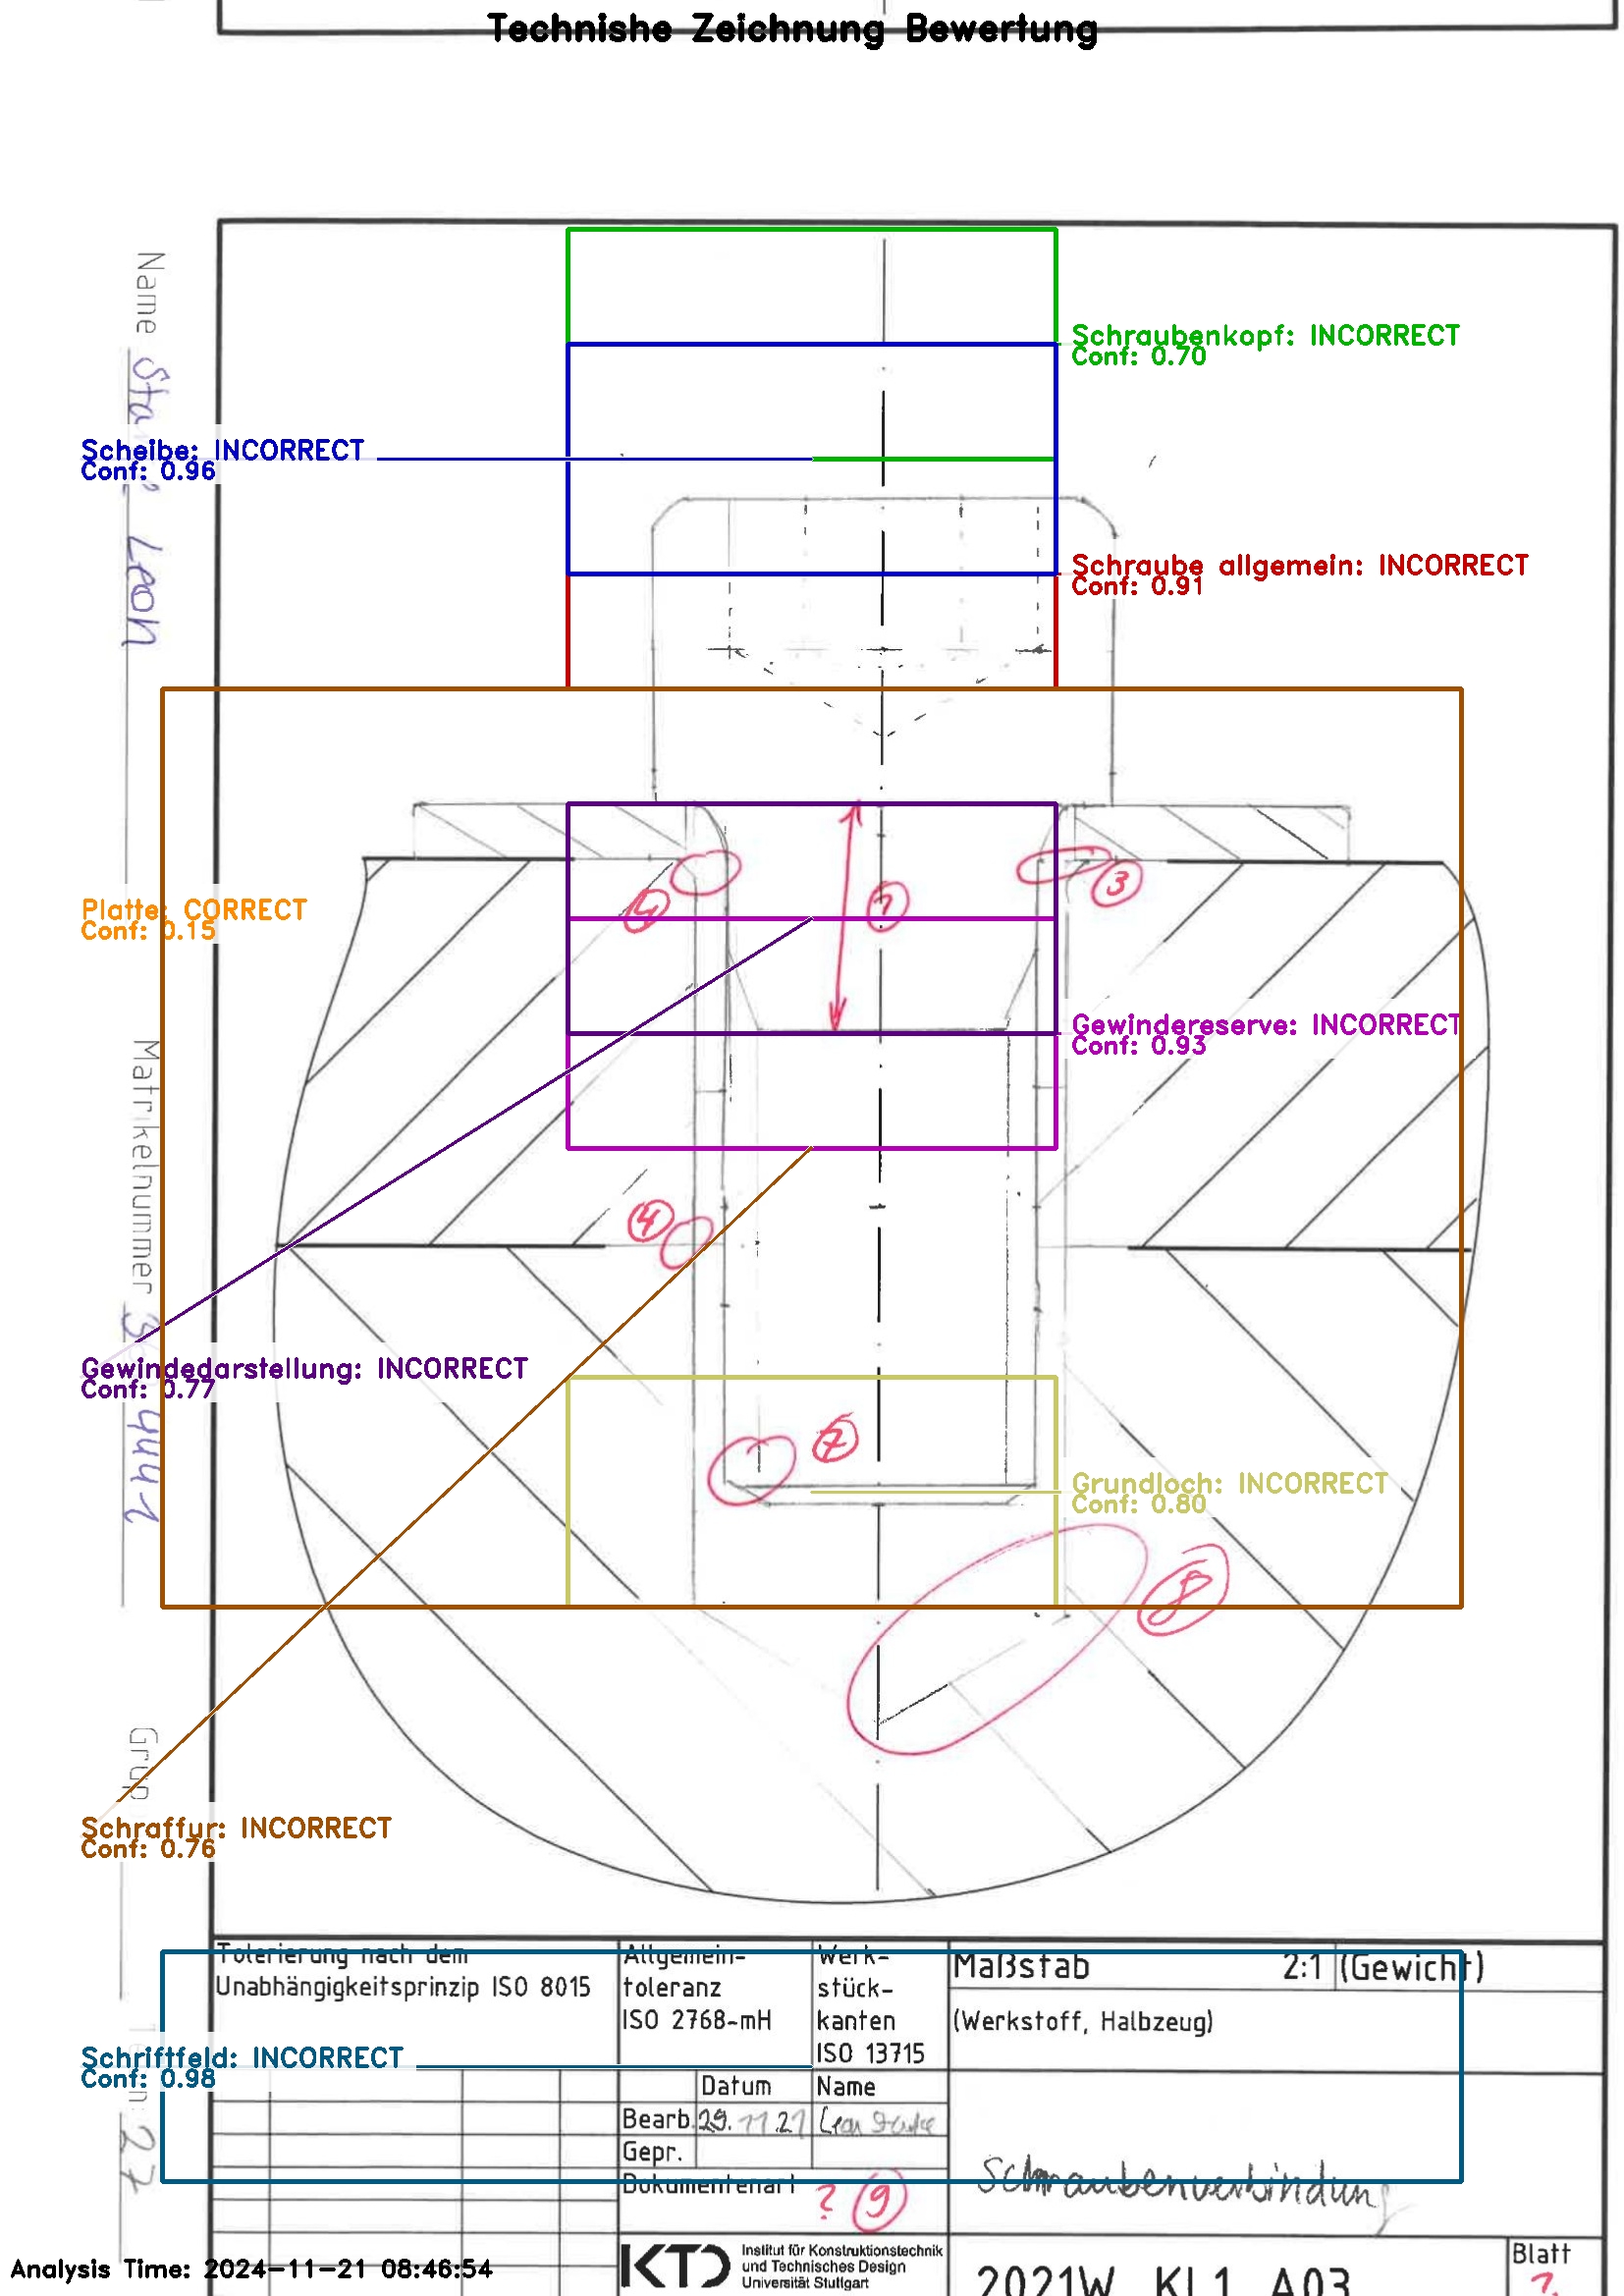 Technishe Zeichnung Bewertung
Schraubenkopf: INCORRECT
Conf: 0.70
Name
Leon
Scheibe: INCORRECT
Conf: 0.96
Schraube allgemein: INCORRECT
Conf: 0.91
3
Platte: CORRECT
Conf: 0.15
Gewindereserve: INCORRECT
Conf: 0.93
Matrikelnummer
4
Gewindedarstellung: INCORRECT
Conf: 0.77
7
Grundloch: INCORRECT
Conf: 0.80
8
Schraffur: INCORRECT
Conf: 0.76
Tolerierung nach dem
Unabhängigkeitsprinzip ISO 8015
Allgemein-
toleranz
ISO 2768-mH
Werk-
stück-
kanten
ISO 13715
Maßstab 2:1 (Gewicht)
(Werkstoff, Halbzeug)
Schriftfeld: INCORRECT
Conf: 0.98
27
Datum Name
Bearb. 29.11.21
Gepr.
Dokumentenart ? 9
Schraubenverbindung
KTD Institut für Konstruktionstechnik
und Technisches Design
Universität Stuttgart
2021W KL1 A03
Blatt
?
Analysis Time: 2024-11-21 08:46:54